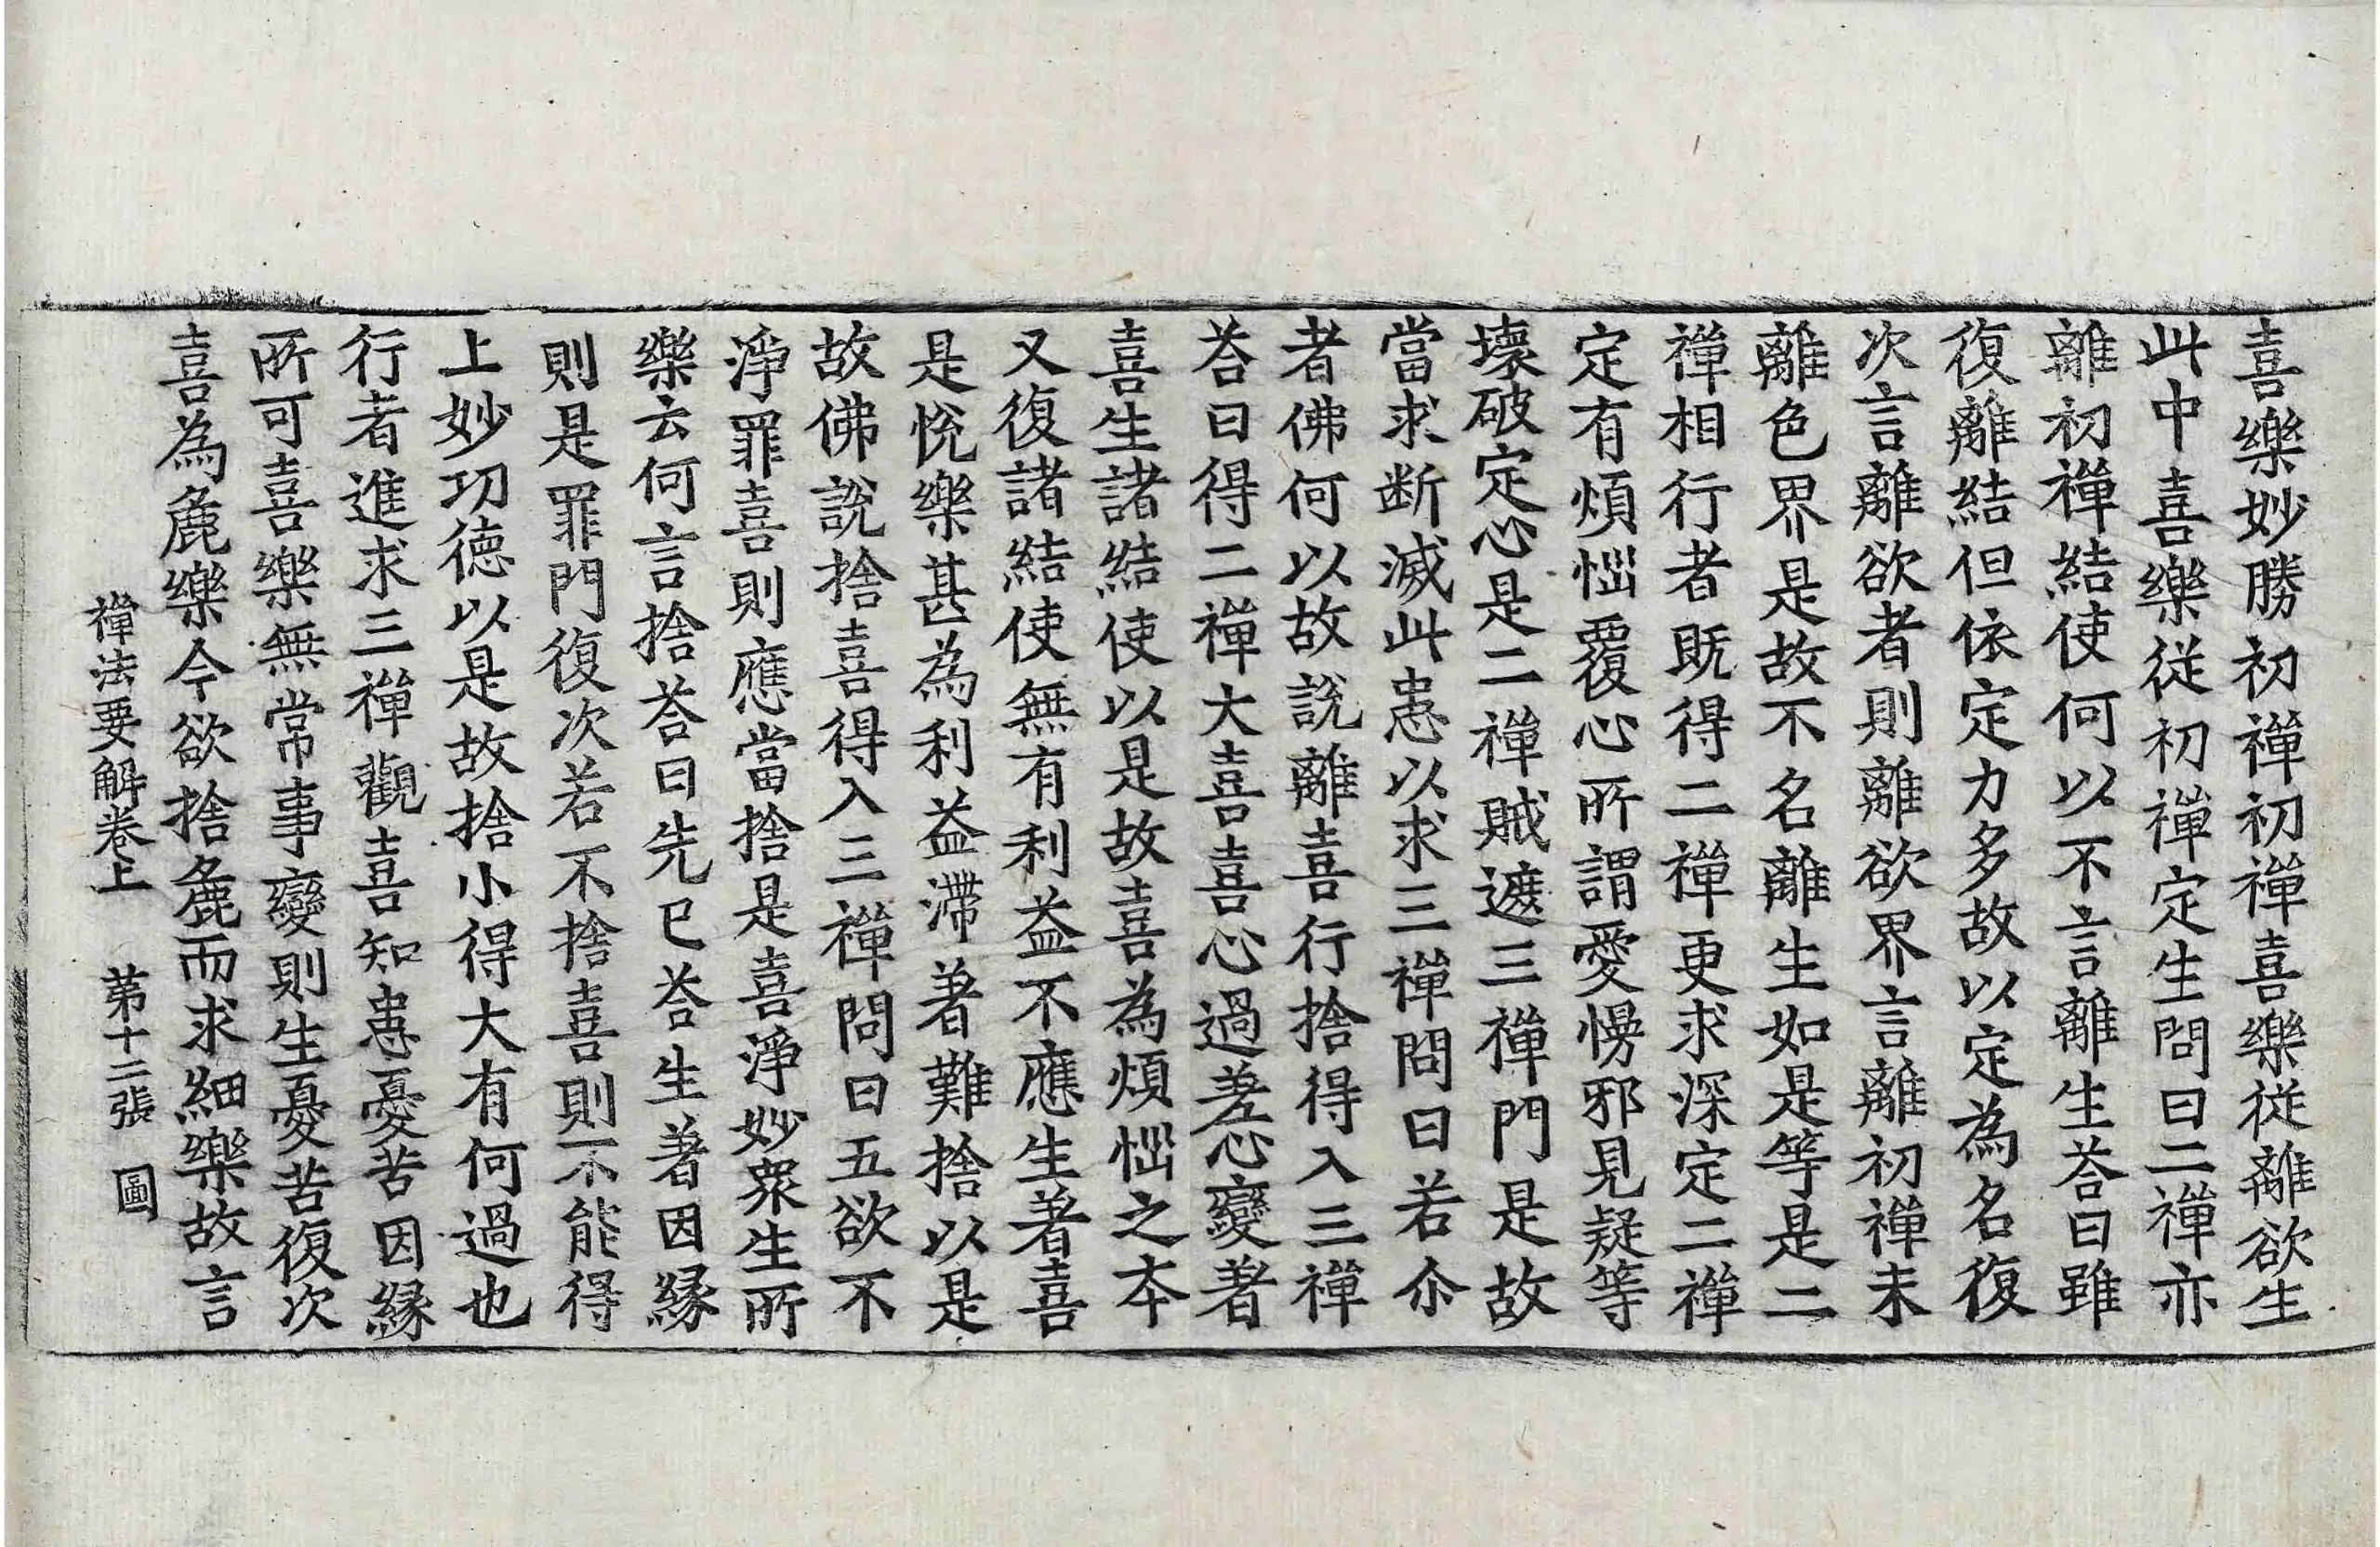 喜樂妙勝初禪初禪喜樂從離欲生
此中喜樂從初禪定生問曰二禪亦
離初禪結使何以不言離生荅曰雖
復離結但依定力多故以定為名復
次言離欲者則離欲界言離初禪未
離色界是故不名離生如是等是二
禪相行者既得二禪更求深定二禪
定有煩惱覆心所謂愛慢邪見疑等
壞破定心是二禪賊遮三禪門是故
當求断滅此患以求三禪問曰若尒
者佛何以故說離喜行捨得入三禪
荅曰得二禪大喜喜心過差心變著
喜生諸結使以是故喜為煩惱之本
又復諸結使無有利益不應生著喜
是悅樂甚為利益滯著難捨以是
故佛說捨喜得入三禪問曰五欲不
淨罪喜則應當捨是喜淨妙衆生所
樂云何言捨荅曰先已荅生著因緣
則是罪門復次若不捨喜則不能得
上妙功德以是故捨小得大有何過也
行者進求三禪觀喜知患憂苦因緣
所可喜樂無常事變則生憂苦復次
喜為麁樂今欲捨麁而求細樂故言
禪法要解卷上 苐十二張 圖